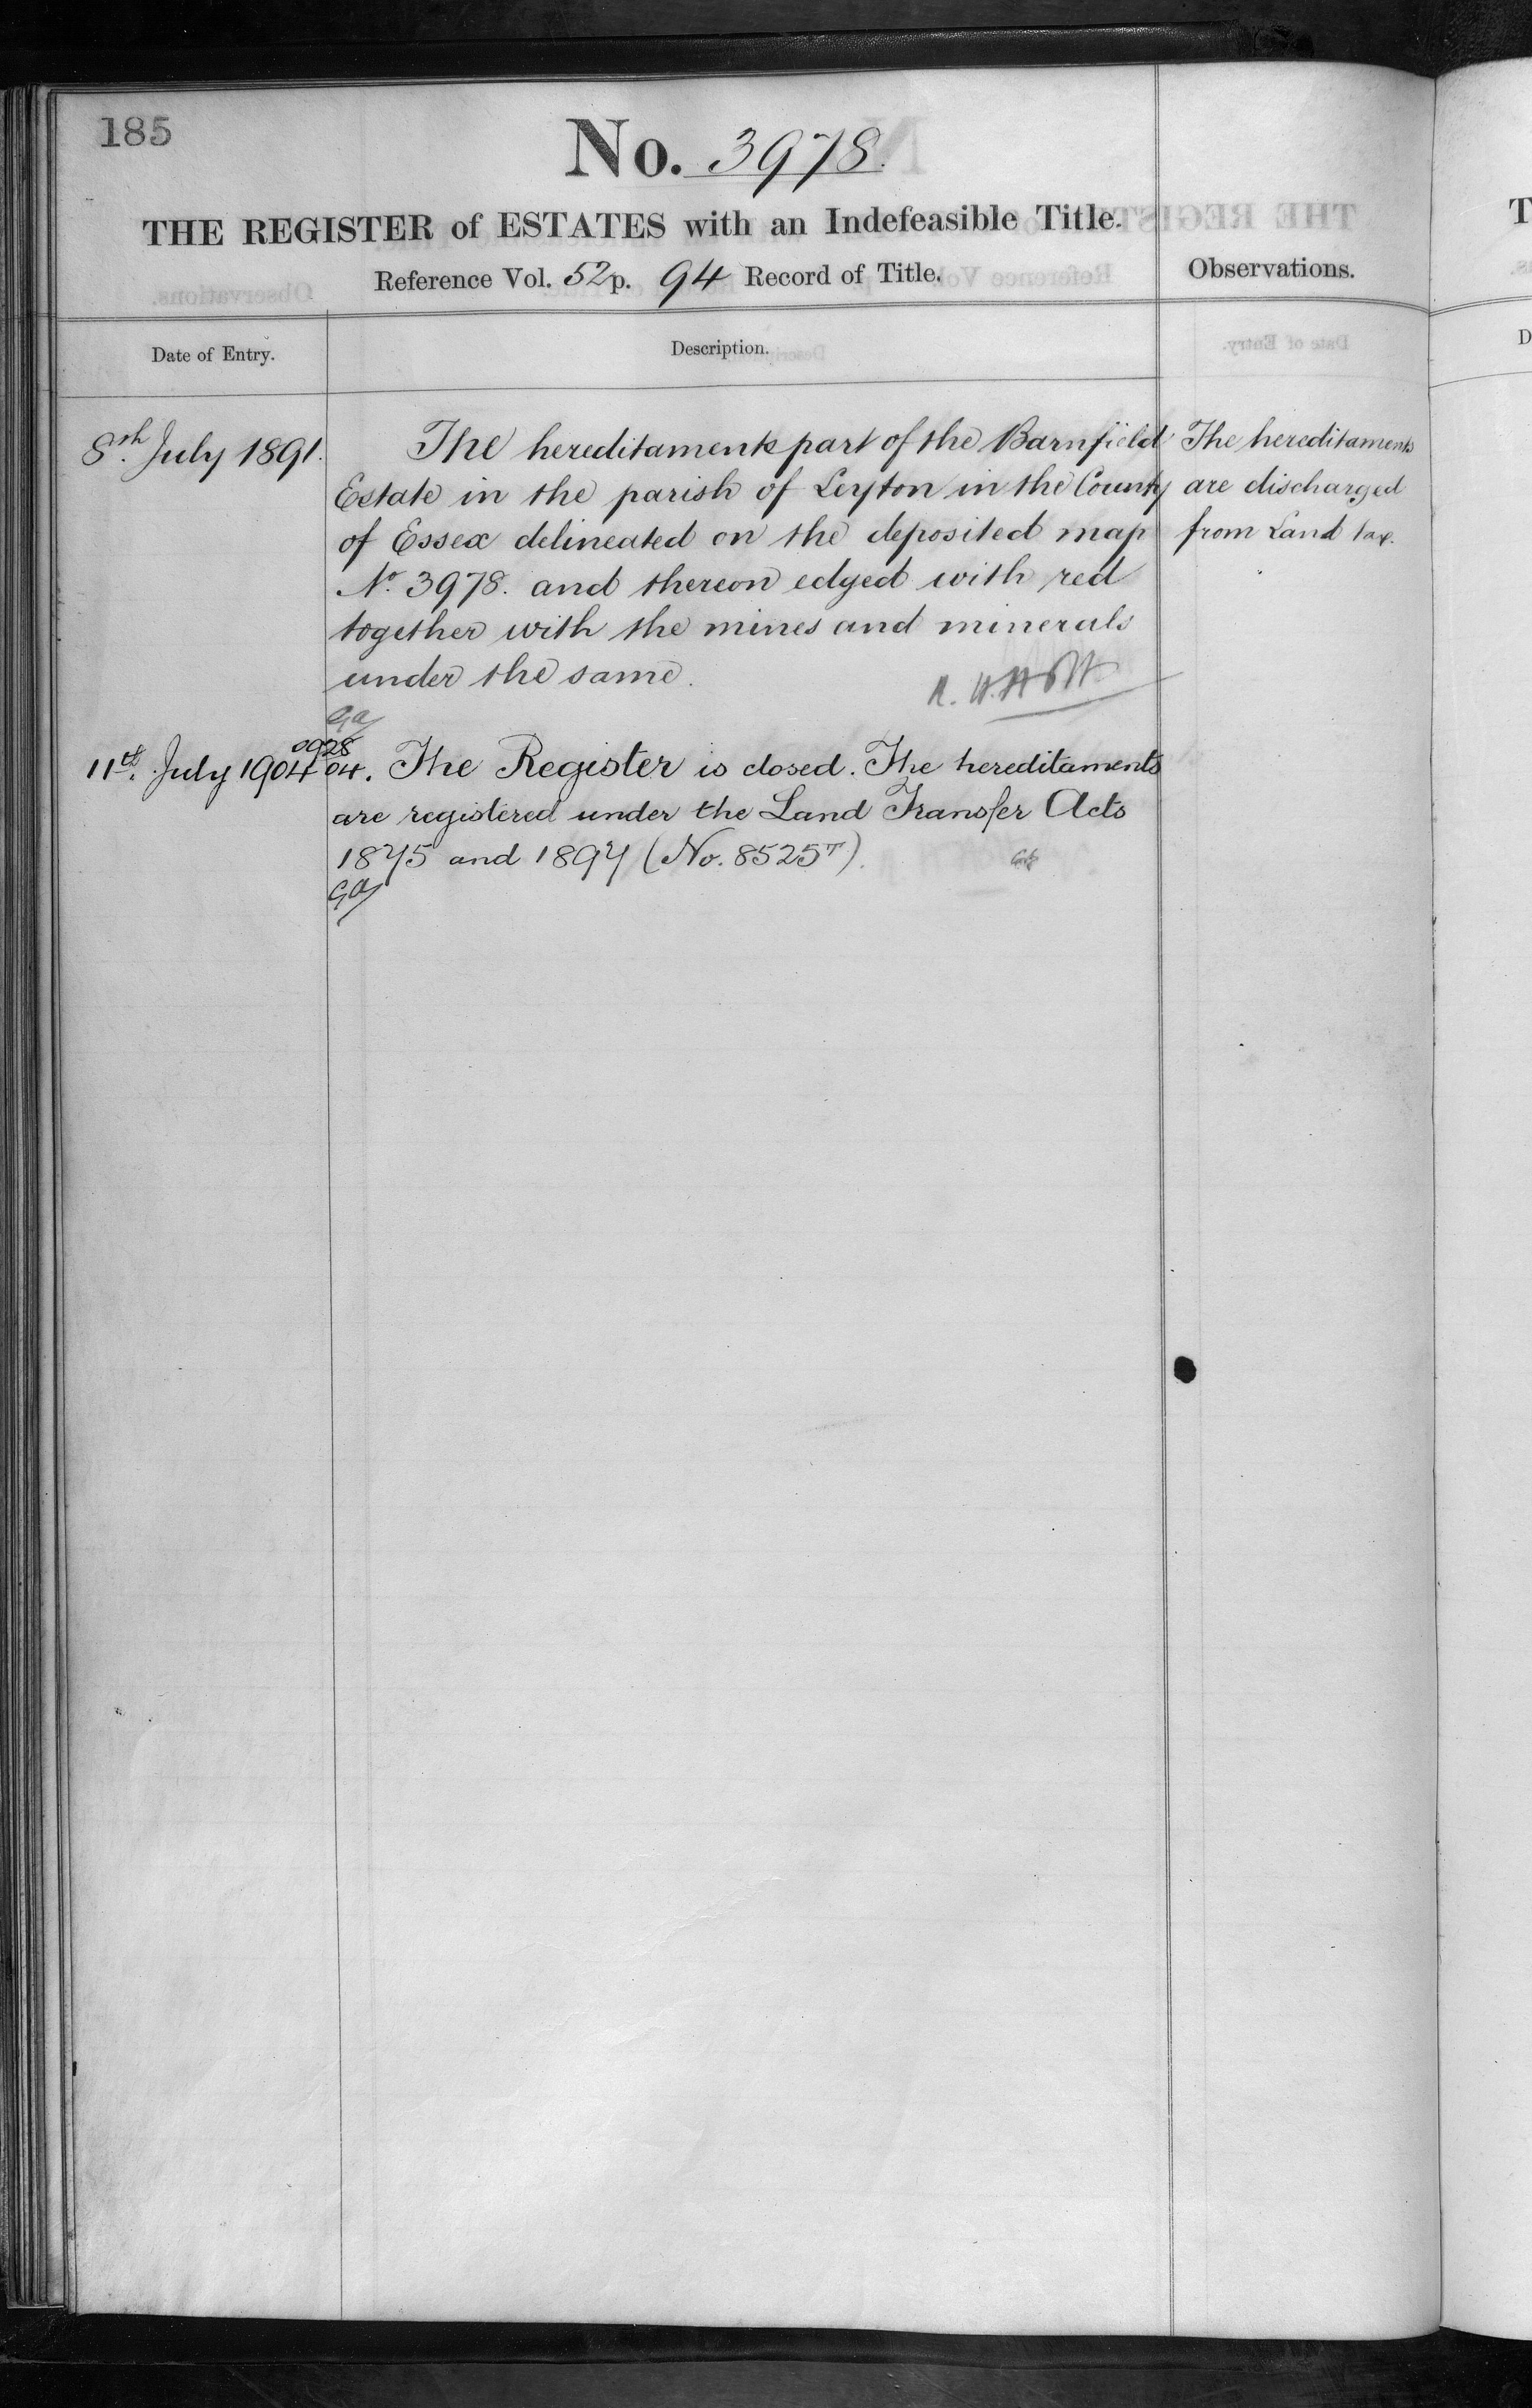 185
No. 3978.
THE REGISTER of ESTATES with an Indefeasible Title.
Reference Vol. 52 p. 94 Record of Title.
Observations.
Date of Entry.
Description.
8th July 1891.
The hereditaments part of the Barnfield
Estate in the parish of Leyton in the County
of Essex delineated on the deposited map
No. 3978. and thereon edged with red
together with the mines and minerals
under the same.
The hereditaments
are discharged
from Land tax.
11th July 1904
0928
04. The Register is closed. The hereditaments
are registered under the Land Transfer Acts
1875 and 1897 (No. 8525T).